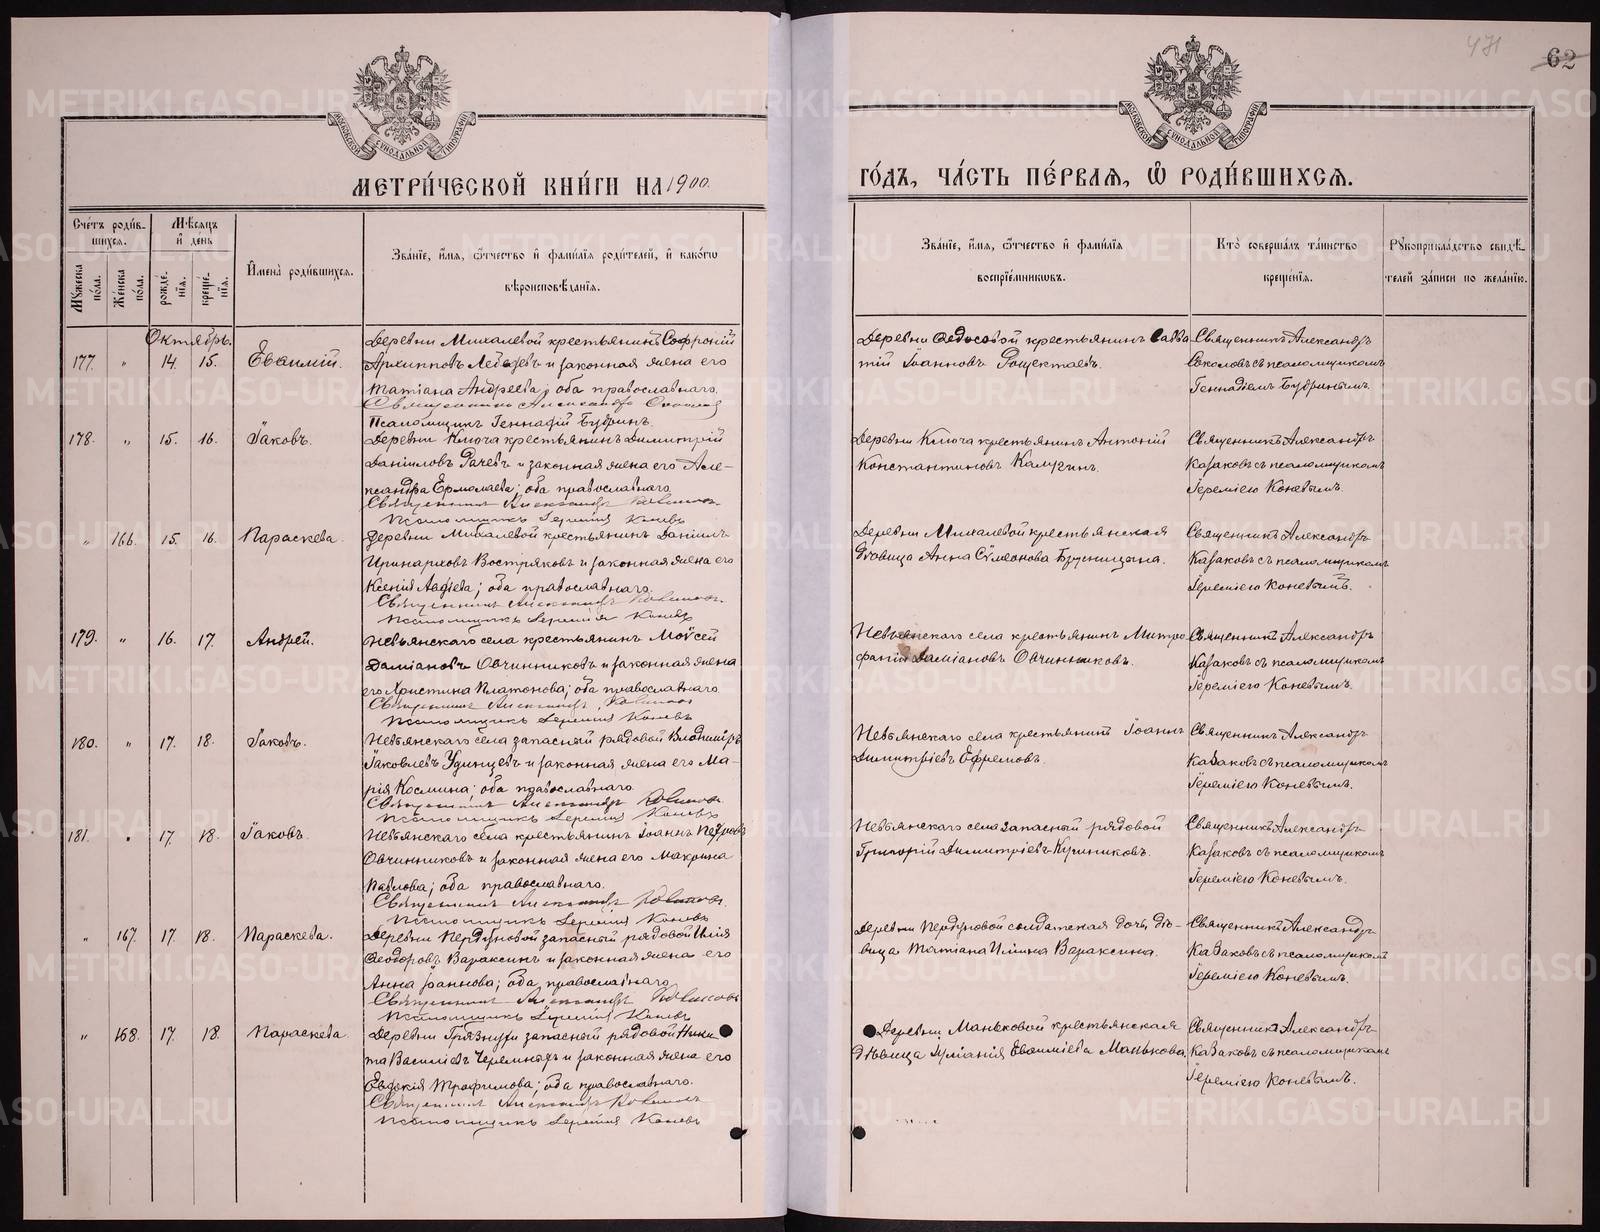 471
62
МЕТРИ́ЧЕСКОЙ КНИ́ГИ НА 1900.
ГО́ДЪ, ЧА́СТЬ ПЕ́РВАЯ, Ѡ РОДИ́ВШИХСЯ.
МОСКОВСКОЙ СѴНОДАЛЬНОЙ ТИПОГРАФІИ
МОСКОВСКОЙ СѴНОДАЛЬНОЙ ТИПОГРАФІИ
Сче́тъ роди́в-
шихся.
Му́жеска по́ла.
Же́нска по́ла.
Мѣ́сяцъ и҆ де́нь
рожде́-
нїя.
креще́-
нїя.
И҆мена̀ роди́вшихся.
Зва́нїе, и҆́мя, ѻ҆́тчество и҆ фами́лїя роди́телей, и҆ како́гѡ
вѣроисповѣ́данїя.
Зва́нїе, и҆́мя, ѻ҆́тчество и҆ фами́лїя
воспрїе́мниковъ.
Кто̀ соверша́лъ та́инство
креще́нїя.
Рꙋкоприкла́дство свидѣ́-
телей за́писи по жела́нїю.
Октябрь.
177. " 14. 15. Евѳимій.
Деревни Михалевой крестьянинъ Софроній
Архипповъ Лебедевъ и законная жена его
Татіана Андреева; оба православнаго.
Священникъ Александръ Соколовъ
Псаломщикъ Геннадій Будринъ.
Деревни Ѳедосовой крестьянинъ Савва-
тій Іоанновъ
Священникъ Александръ
Соколовъ съ псаломщикомъ
Геннадіемъ Будринымъ.
178. " 15. 16. Іаковъ.
Деревни Ключа крестьянинъ Димитрій
Даніиловъ Рачевъ и законная жена его Але-
ксандра Ермолаева; оба православнаго.
Священникъ Александръ Казаковъ
Псаломщикъ Іеремія Коневъ
Деревни Ключа крестьянинъ Антоній
Константиновъ Калугинъ.
Священникъ Александръ
Казаковъ съ псаломщикомъ
Іереміею Коневымъ.
" 166. 15. 16. Параскева.
Деревни Михалевой крестьянинъ Даніилъ
Иринарховъ Востряковъ и законная жена его
Ксенія Авдіева; оба православнаго.
Священникъ Александръ Казаковъ
Псаломщикъ Іеремія Коневъ
Деревни Михалевой крестьянская
дѣвица Анна Сѵмеонова Брусницына.
Священникъ Александръ
Казаковъ съ псаломщикомъ
Іереміею Коневымъ.
179. " 16. 17. Андрей.
Невьянскаго села крестьянинъ Моѵсей
Даміановъ Овчинниковъ и законная жена
его Христина Платонова; оба православнаго.
Священникъ Александръ Казаковъ
Псаломщикъ Іеремія Коневъ
Невьянскаго села крестьянинъ Митро-
фаній Даміановъ Овчинниковъ.
Священникъ Александръ
Казаковъ съ псаломщикомъ
Іереміею Коневымъ.
180. " 17. 18. Іаковъ.
Невьянскаго села запасный рядовой Владиміръ
Іаковлевъ Удинцевъ и законная жена его Ма-
рія Космина; оба православнаго.
Священникъ Александръ Казаковъ
Псаломщикъ Іеремія Коневъ
Невьянскаго села крестьянинъ Іоаннъ
Димитріевъ Ефремовъ.
Священникъ Александръ
Казаковъ съ псаломщикомъ
Іереміею Коневымъ.
181. " 17. 18. Іаковъ.
Невьянскаго села крестьянинъ Іоаннъ Петровъ
Овчинниковъ и законная жена его Макрина
Павлова; оба православнаго.
Священникъ Александръ Казаковъ
Псаломщикъ Іеремія Коневъ
Невьянскаго села запасный рядовой
Григорій Димитріевъ
Священникъ Александръ
Казаковъ съ псаломщикомъ
Іереміею Коневымъ.
" 167. 17. 18. Параскева.
Деревни Пердуновой запасный рядовой Илія
Ѳеодоровъ Вараксинъ и законная жена его
Анна Іоаннова; оба православнаго.
Священникъ Александръ Казаковъ
Псаломщикъ Іеремія Коневъ
Деревни Пердуновой солдатская дочь, дѣ-
вица Татіана Иліина Вараксина.
Священникъ Александръ
Казаковъ съ псаломщикомъ
Іереміею Коневымъ.
" 168. 17. 18. Параскева.
Деревни Грязнухи запасный рядовой Ники-
та Василіевъ и законная жена его
Евдокія Трофимова; оба православнаго.
Священникъ Александръ Казаковъ
Псаломщикъ Іеремія Коневъ
Деревни Маньковой крестьянская
дѣвица Іуліанія Евѳиміева Манькова.
Священникъ Александръ
Казаковъ съ псаломщикомъ
Іереміею Коневымъ.
METRIKI.GASO-URAL.RU